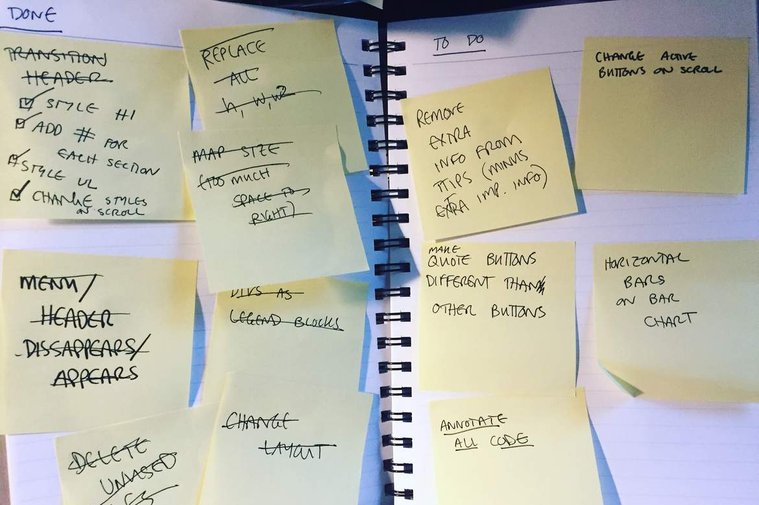 DONE
TRANSITION
HEADER
STYLE H1
ADD # FOR
EACH SECTION
STYLE UL
CHANGE STYLES
ON SCROLL
REPLACE
ALL
h, w, w2
MAP SIZE
(TOO MUCH
SPACE TO
RIGHT)
MENU/
HEADER
DISSAPPEARS/
APPEARS
DIVS AS
LEGEND BLOCKS
DELETE
UNUSED
CHANGE
LAYOUT
TO DO
REMOVE
EXTRA
INFO FROM
TTIPS (MINUS
EXTRA IMP. INFO)
CHANGE ACTIVE
BUTTONS ON SCROLL
MAKE
QUOTE BUTTONS
DIFFERENT THAN
OTHER BUTTONS
HORIZONTAL
BARS
ON BAR
CHART
ANNOTATE
ALL CODE